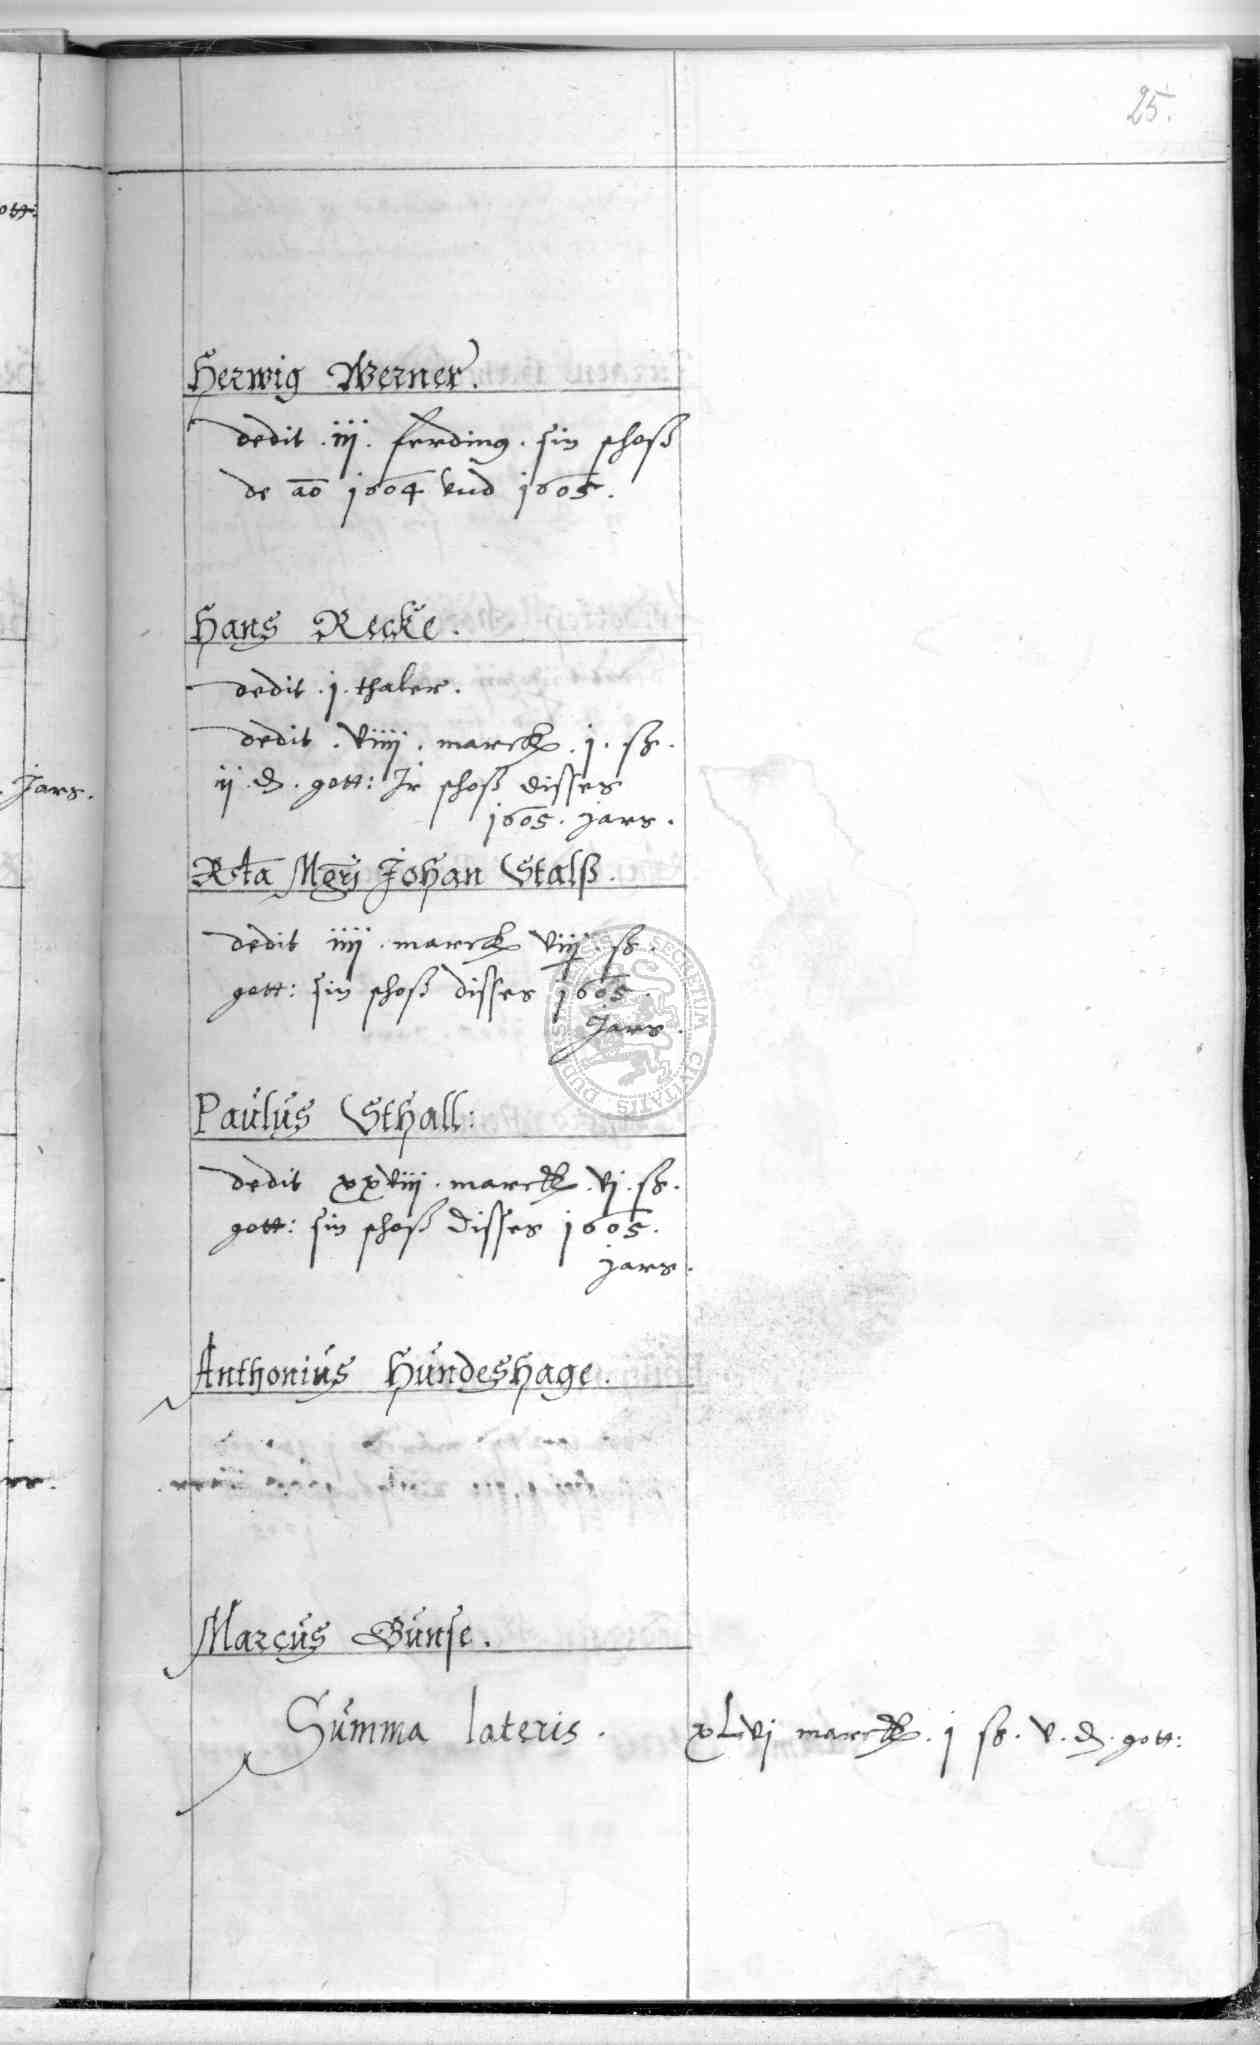 25.
ott:
Herwig Werner.
dedit .iij. ferding. sin schoß
de ao 1604 vnd 1605.
Hans Recke.
dedit .j. thaler.
dedit . viiij . marck . j . sß.
ij . d . gott: Jr schoß disses
1605. jars.
Jars.
Rta Mgrj Johan Stalß.
dedit iiij . marck viij . sß.
gott: sin schoß disses 1605.
Jars.
Paulus Sthall:
dedit xxviij . marck . vj . sß.
gott: sin schoß disses 1605.
jars.
Anthonius Hundeshage.
Marcus Gunse.
Summa lateris . xLvj marck . j sß . v . d . gott:
SECRETUM CIVITATIS DUDERSTADENSIS